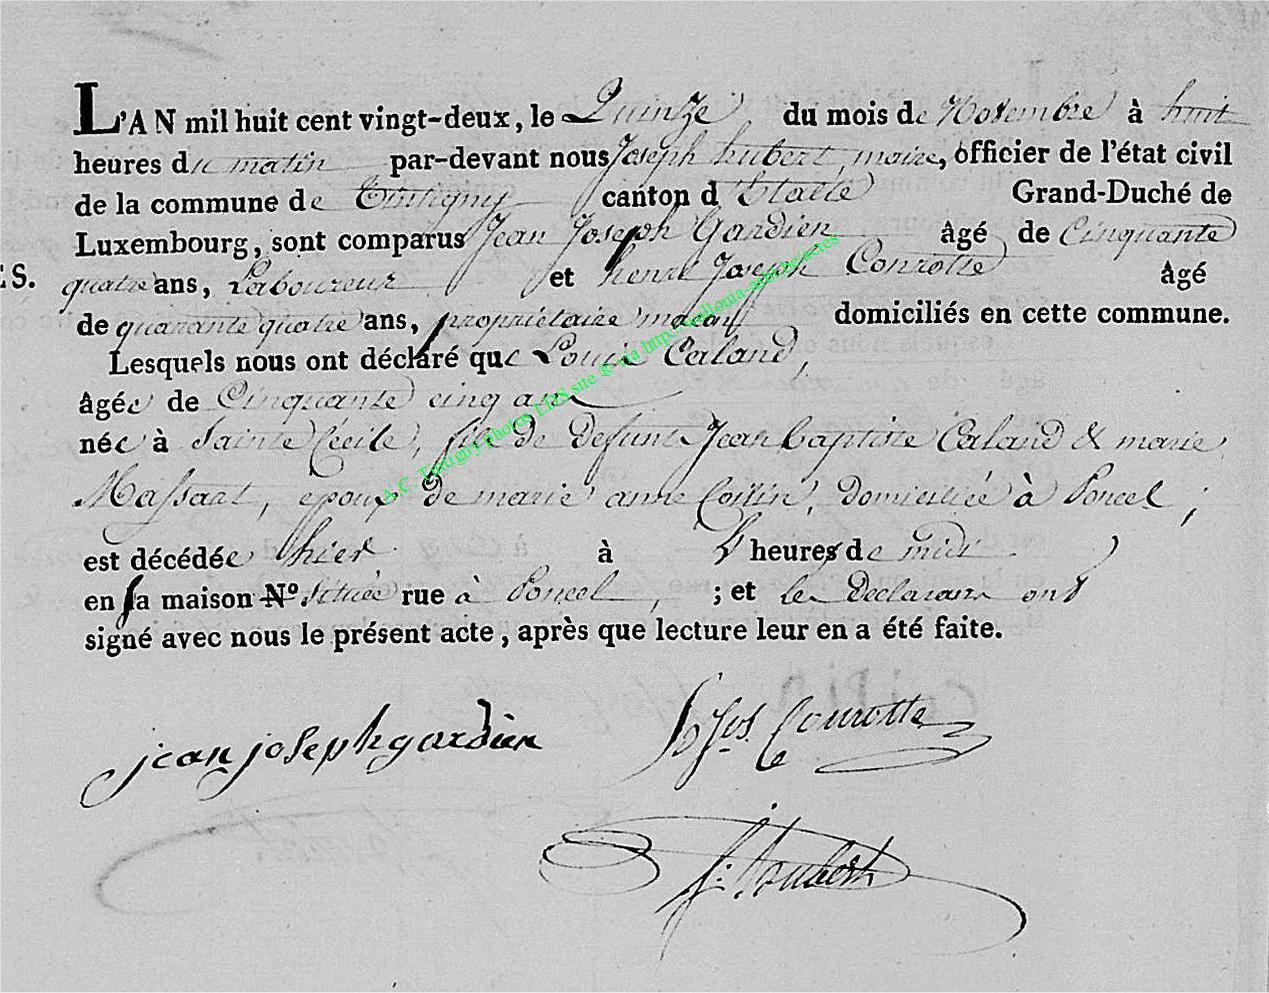 L'AN mil huit cent vingt-deux, le Quinze du mois de Novembre à huit
heures du matin par-devant nous Joseph hubert, maire, officier de l'état civil
de la commune de Tintigny canton d'Etalle Grand-Duché de
Luxembourg, sont comparus Jean Joseph Gardien âgé de Cinquante
ES. quatre ans, Laboureur et henri Joseph Conrotte âgé
de quarante quatre ans, propriétaire domiciliés en cette commune.
Lesquels nous ont déclaré que Louis Caland,
âgée de Cinquante cinq ans
née à Sainte Cécile, fils de defunt Jean baptiste Caland & marie
Massart, epoux de marie anne Collin, Domiciliée à Poncel ;
est décédée hier à heures de midi
en sa maison N.º située rue à Poncel, ; et les Declarans ont
signé avec nous le présent acte, après que lecture leur en a été faite.
A.C. Tintigny photos LDS site & via http://wallonia-asbl.be/actes
jean joseph gardien
h Jos. Conrotte
j: houbert